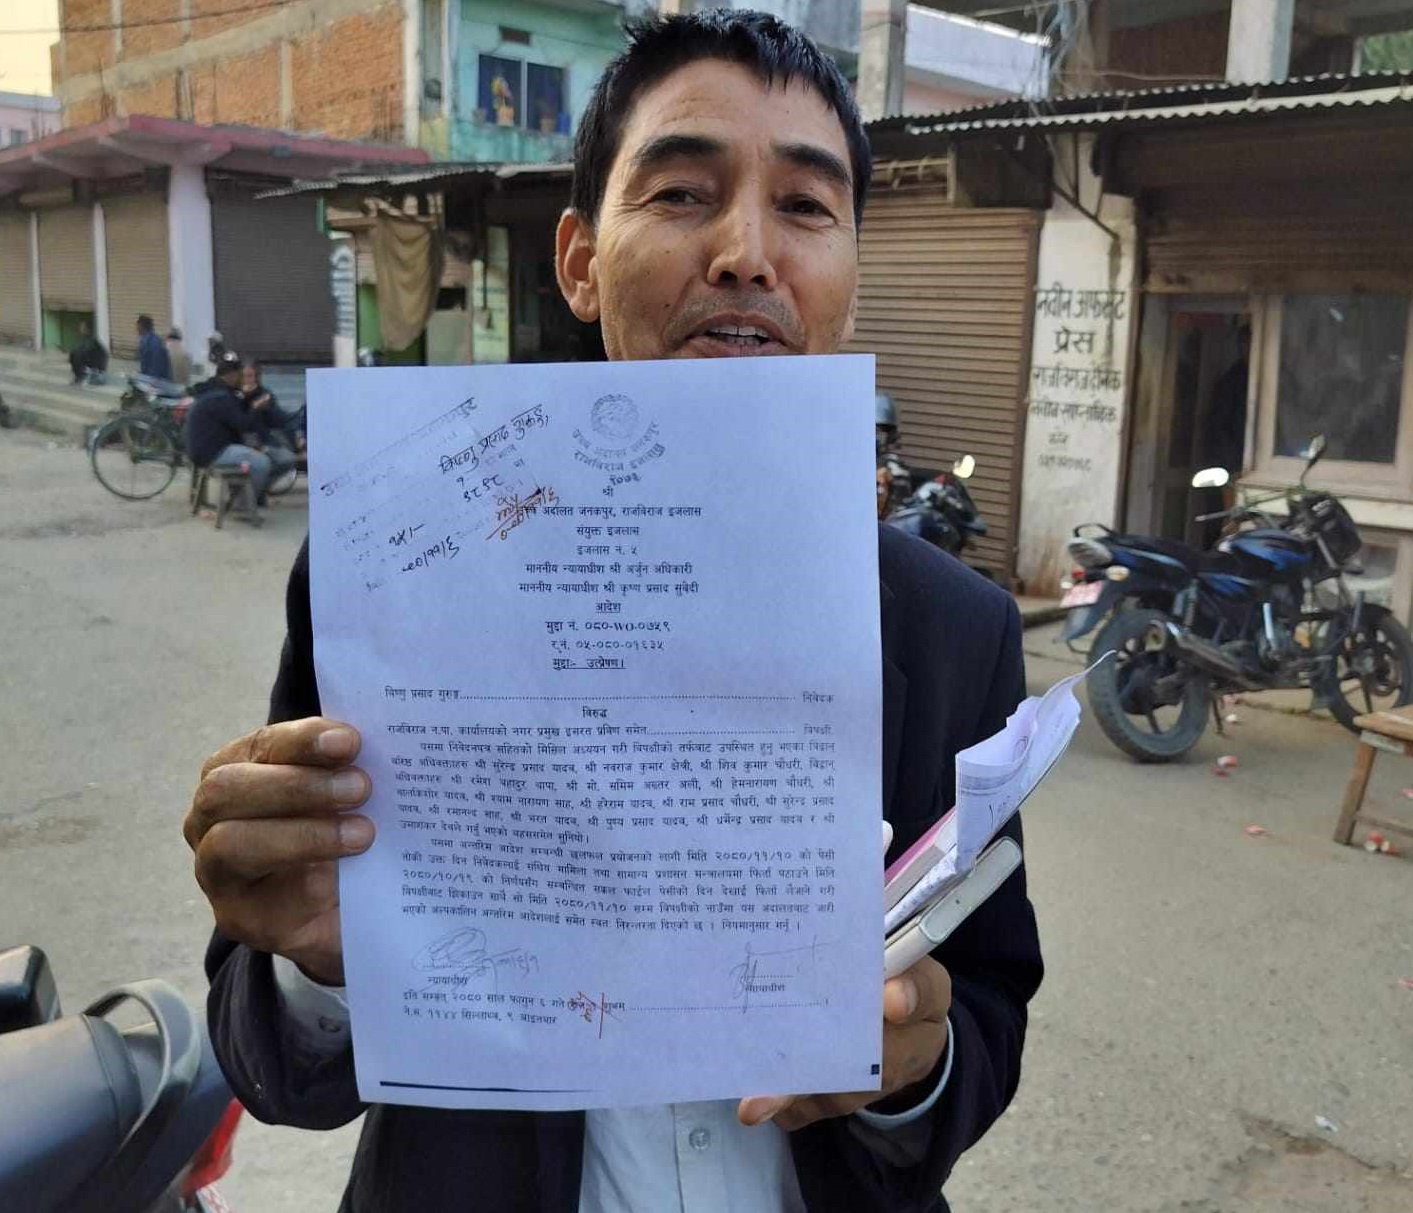 विष्णु प्रसाद गुरुङ्ग
१८९८
१५।-
८०/११/६
उच्च अदालत जनकपुर
राजविराज इजलास
२०७३
श्री
उच्च अदालत जनकपुर, राजविराज इजलास
संयुक्त इजलास
इजलास नं. ५
माननीय न्यायाधीश श्री अर्जुन अधिकारी
माननीय न्यायाधीश श्री कृष्ण प्रसाद सुवेदी
आदेश
मुद्दा नं. ०८०-WO-०७५९
र.नं. ०५-०८०-०१६३५
मुद्दाः- उत्प्रेषण।
विष्णु प्रसाद गुरुङ्ग........ निवेदक
विरुद्ध
राजविराज न.पा. कार्यालयको नगर प्रमुख इसरत प्रविण समेत........ विपक्षी
यसमा निवेदनपत्र सहितको मिसिल अध्ययन गरी विपक्षीको तर्फबाट उपस्थित हुनु भएका विद्वान्
वरिष्ठ अधिवक्ताहरू श्री सुरेन्द्र प्रसाद यादव, श्री नवराज कुमार क्षेत्री, श्री शिव कुमार चौधरी, विद्वान्
अधिवक्ताहरू श्री रमेश बहादुर थापा, श्री मो. समिम अख्तर अली, श्री हेमनारायण चौधरी, श्री
बालकिशोर यादव, श्री श्याम नारायण साह, श्री हरेराम यादव, श्री राम प्रसाद चौधरी, श्री सुरेन्द्र प्रसाद
यादव, श्री रमानन्द साह, श्री भरत यादव, श्री पुष्प प्रसाद यादव, श्री धर्मेन्द्र प्रसाद यादव र श्री
उमाशंकर देवले गर्नु भएको बहससमेत सुनियो।
यसमा अन्तरिम आदेश सम्बन्धी छलफल प्रयोजनको लागी मिति २०८०/११/१० को पेसी
तोकी उक्त दिन निवेदकलाई संघिय मामिला तथा सामान्य प्रशासन मन्त्रालयमा फिर्ता पठाउने मिति
२०८०/१०/१९ को निर्णयसँग सम्बन्धित सक्कल फाईल पेसीको दिन देखाई फिर्ता लैजाने गरी
विपक्षीबाट झिकाउन साथै सो मिति २०८०/११/१० सम्म विपक्षीको नाउँमा यस अदालतबाट जारी
भएको अल्पकालिन अन्तरिम आदेशलाई समेत स्वतः निरन्तरता दिएको छ । नियमानुसार गर्नू ।
न्यायाधीश
न्यायाधीश
इति सम्वत् २०८० साल फागुन ६ गते रोज १ शुभम्........।
ने.सं. ११४४ सिल्लाथ्व, ९ आइतबार
नवीन अफसेट
प्रेस
राजविराज दैनिक
नवीन साप्ताहिक
फोन